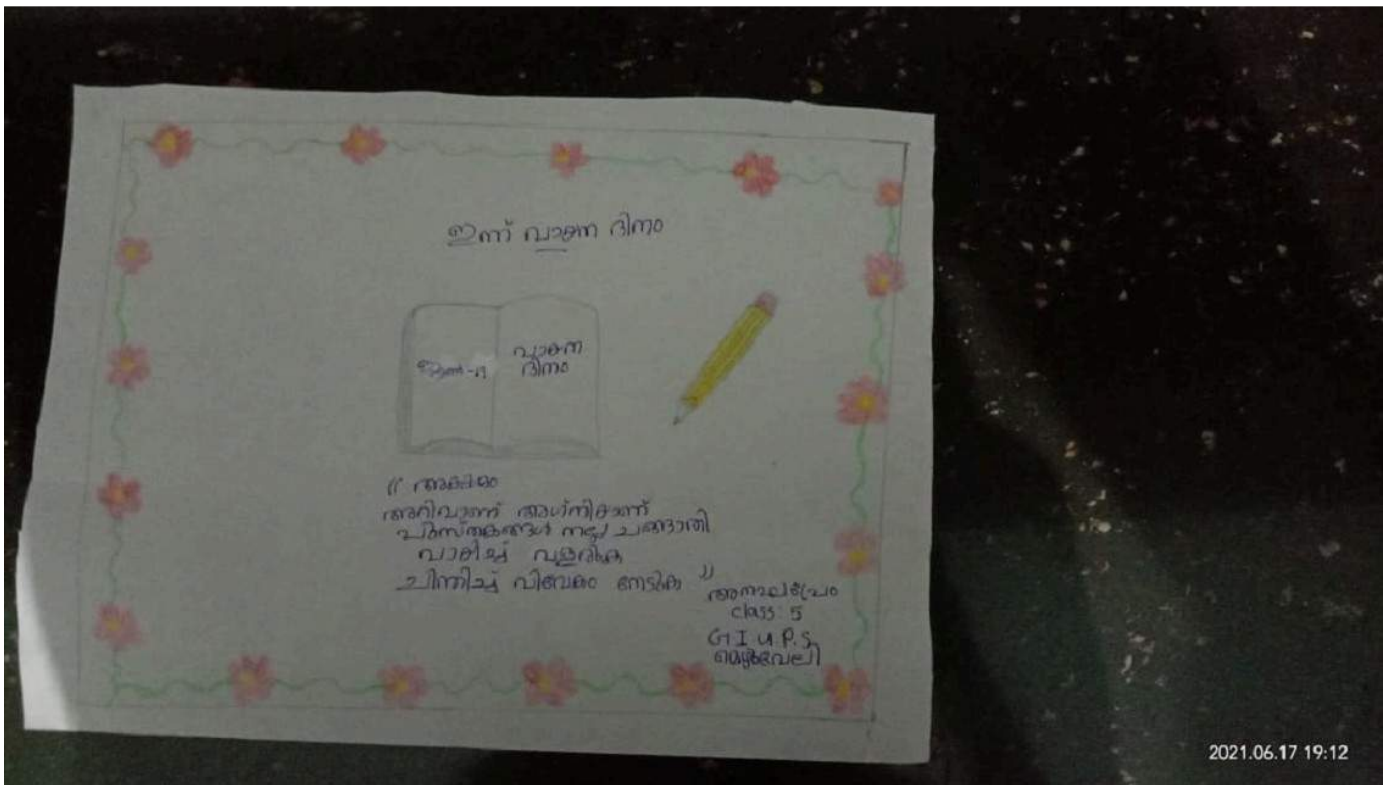 ഇന്ന് വായന ദിനം
ജൂൺ-19
വായന
ദിനം
"
അറിവാണ് അഗ്നിയാണ്
പുസ്തകങ്ങൾ നല്ല ചങ്ങാതി
വായിച്ച് വളരുക
ചിന്തിച്ച് വിവേകം നേടുക "
class: 5
G.I.U.P.S,
മെഴുവേലി
2021.06.17 19:12